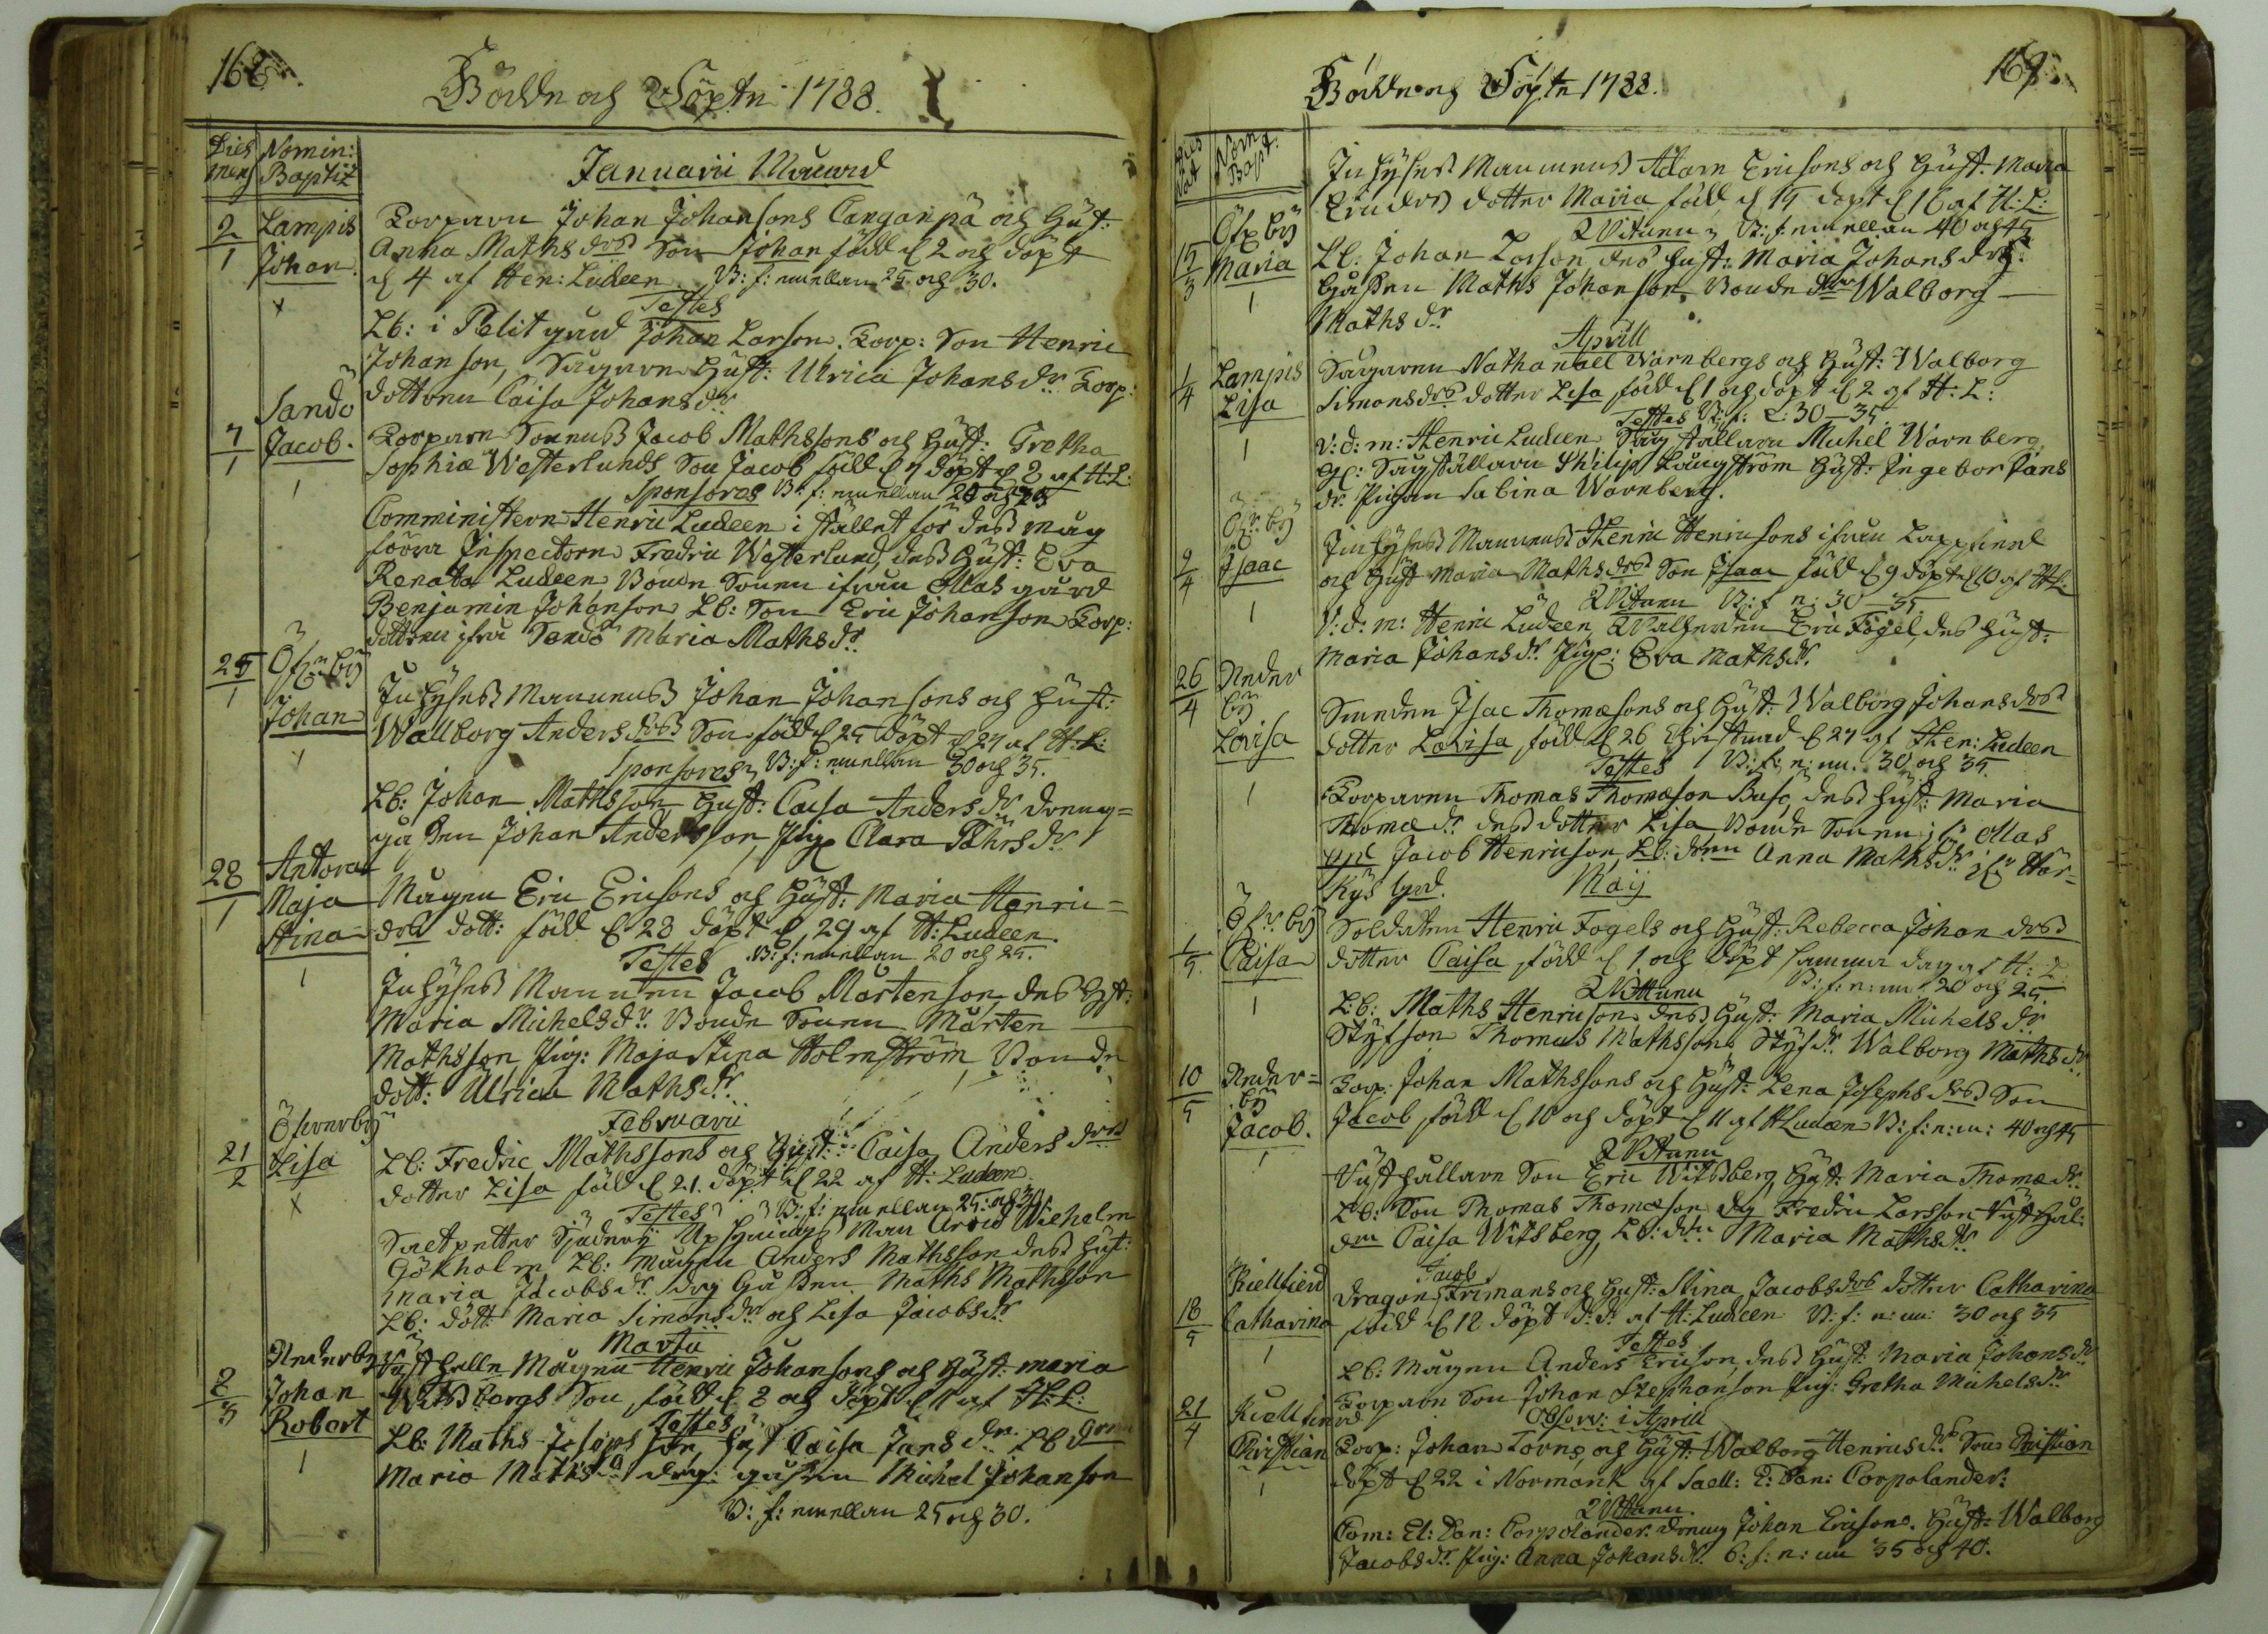 168.
Födde och Döpte 1788.
Dies Nomin:
mens Baptiz
Januarii Månad
2/1 Lampis Johan
Torparen Johan Johansons Canganpä och Hust:
Anna Mathsdrs Son Johan född d 2 och döpt
d 4 af Hen: Ludeen. B: f: emellan 25 och 30.
Testes
Lb: i Pelitgård Johan Larson. Torp: Son Henric
Johanson, Sågaren Hust: Ulrica Johansdr Torp:
dottern Caisa Johansdr
7/1 Sandö Jacob.
Torparen Sonens Jacob Mathssons och Hust: Gretha
Sophia Westerlunds Son Jacob född d 7 döpt d 8 af H:L:
Sponsores B: f: emellan 20 och 25
Comministern Henric Ludeen i stället för dess måg
Inspectoren Fredric Westerlund, dess Hust: Eva
Renata Ludeen, Bonde Sonen ifrån Ollas gård
Benjamin Johanson Lb: Son Eric Johanson Torp:
dottren ifrån Sandö Maria Mathsdr
25/1 Öfverby Johan
Inhyses Mannens Johan Johansons och Hust:
Wallborg Andersdrs Son född d 25 döpt d 27 af H:L:
Sponsores, B: f: emellan 30 och 35.
Lb: Johan Mathsson Hust: Caisa Andersdr dreng=
gåssen Johan Andersson, Pig Clara Påhrsdr
28/1 Antora Maja Stina
Mågen Eric Ericsons och Hust: Maria Henric=
drs dott: född d 28 döpt d 29 af H: Ludeen.
Testes B: f: emellan 20 och 25.
Inhyses Mannen Jacob Mårtenson, dess Hust:
Maria Michelsdr Bonde Sonen Mårten
Mathsson Pig: Maja Stina Holmström, Bonde
dott: Ulrica Mathsdr
Februarii
21/2 Öfverby Lisa
Lb: Fredric Mathssons och Hust: Caisa Andersdrs
dotter Lisa född d 21. döpt d 22 af H: Ludeen
Testes B: f: emellan 25 och 30
Saltpetter Sjuderi Uphsynings Man Arvid Wilhelm
Gökholm Lb: Mågen Anders Mathsson dess Hust:
Maria Jacobsdr drg Gåssen Maths Mathsson
Lb: dott: Maria Simonsdr och Lisa Jacobsdr
Martii
8/3 Nederby Johan Robert
Mågen Henric Johansons och Hust: Maria
Witsbergs Son född d 8 och döpt d af H:L:
Testes
Lb: Maths Josephsson, Hust Caisa Jansdr. Lb
Maria Mathsdr dreng: gåssen Michel Johanson
B: f: emellan 25 och 30.
169.
Födde och Döpte 1788.
Dies Nat Nom: Bapt:
15/3 Öfverby Maria
Inhyses Mannens Adam Ericsons och Hust: Maria
Ericsdrs dotter Maria född d 15 döpt d 16 af H:L:
Witnen, B: f: emellan 40 och 45
Lb: Johan Larson dess Hust: Maria Johansdr
Gåssen Maths Johanson, Bondedr Walborg
Mathsdr
Aprill
1/4 Lampis Lisa
Sågaren Nathanaël Warnbergs och Hust: Walborg
Simonsdrs dotter Lisa född d 1 och döpt d 2 af H:L:
Testes B: f: L: 30—35
V: d: m: Henric Ludeen Sågställaren Michel Warnberg,
Sågställaren Philip Långström Hust: Ingebor Jans
dr. Pigan Sabina Warnberg.
9/4 Öfverby Isaac
Inhyses Mannens Henric Henricsons ifrån Lappfierd
och Hust Maria Mathsdrs Son Isaac född d 9 döpt d 10 af H:L:
Witnen B: f n: 30—35.
V: d: m: Henric Ludeen Wallherden Eric Fogel, dess Hust:
Maria Johansdr Pig: Eva Mathsdr.
26/4 Nederby Lovisa
Smeden Isac Thomæsons och Hust: Walborg Johansdrs
dotter Lovisa född d 26 Christnad d 27 af Hen: Ludeen
Testes B: f: n: m: 30 och 35.
Torparen Thomas Thomæson Busc, dess Hust: Maria
Thomædr dess dotter Lisa Bonde Sonen if: Ollas
grd Jacob Henricson, Lb: drn Anna Mathsdr if: Här=
kys grd. Maij
1/5. Öfverby Caisa
Soldaten Henric Fogels och Hust: Rebecca Johandrs
dotter Caisa född d 1 och döpt samma dag af H:L
Witnen B: f: n: m: 20 och 25.
Lb: Maths Henricson dess Hust: Maria Michelsdr
Styfson Thomas Mathsson Styfdr Walborg Mathsdr
10/5 Neder=by Jacob.
Torp. Johan Mathssons och Hust: Lena Josephsdrs Son
Jacob född d 10 och döpt d 11 af H Ludeen B: f: n: m: 40 och 45
Witnen
Son Eric Witsberg, Hust: Maria Thomædr
Lb: Son Thomas Thomæson drg Fredric Larsson
Caisa Witsberg, Lb: drn Maria Mathsdr
18/5 Kiellfierd Catharina
Dragon Jacob Frimans och Hust: Stina Jacobsdrs dotter Catharina
född d 18 döpt d: d: af H: Ludeen B: f: n: m: 30 och 35
Testes
Lb: Mågen Anders Ericson, dess Hust: Maria Johansdr
Torparen Son Johan Stephanson Pig: Gretha Michelsdr
Observ: i Aprill
21/4 Kiellfierd Christian
Torp: Johan Torns, och Hust: Walborg Henricsdrs Son Christian
döpt d 22 i Normark af Sacell: E: Dan: Corpolander:
Witnen
Com: El: Dan: Corpolander. dreng Johan Ericsons. Hust: Walborg
Jacobsdr. Pig: Anna Johansdr. B: f: n: m 35 och 40.